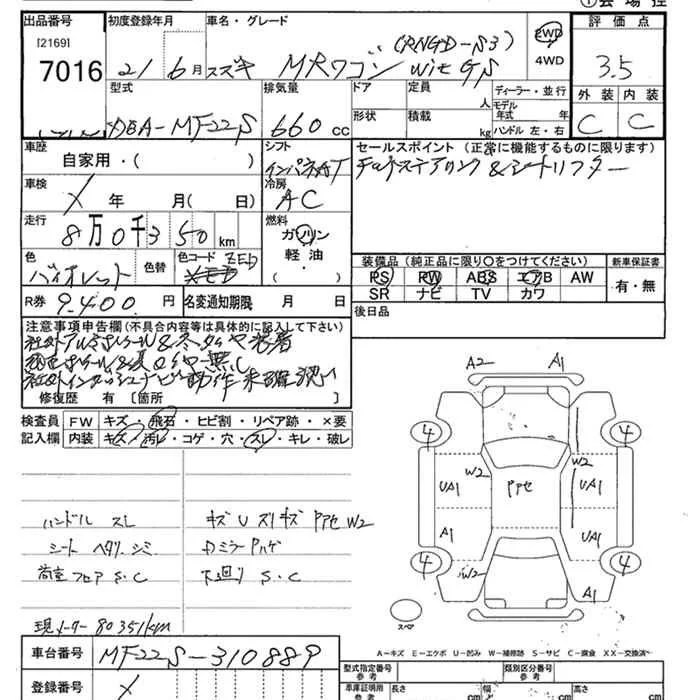 ①会場控
出品番号 初度登録年月 車名・グレード 評価点
[2169]
7016 21 6月 スズキ MRワゴン (RNGD-S3) Wit GS 2WD 4WD 3.5
型式 排気量 ドア 定員 人 ディーラー・並行 外装 内装
DBA-MF22S 660 CC 形状 積載 kg モデル年式 年 ハンドル 左・右 C C
車歴 シフト セールスポイント (正常に機能するものに限ります)
自家用・( ) インパネAT チルトステアリング&シートリフター
車検 冷房
X 年 月( 日) AC
走行 燃料
8万0千350km ガソリン
軽油
・( )
色 色替 色コード ZED 装備品 (純正品に限り○をつけてください) 新車保証書
バイオレット PS PW ABS エアB AW 有・無
SR ナビ TV カワ
R券 9.400円 名変通知期限 月 日 後日品
注意事項申告欄(不具合内容等は具体的に記入して下さい)
社外アルミホイール&冬タイヤ装着
社外インダッシュナビ動作未確認
修復歴 有 〔箇所 〕
検査員 FW キズ・飛石・ヒビ割・リペア跡・×要
記入欄 内装 キズ・汚レ・コゲ・穴・スレ・キレ・破レ
ハンドル スレ キズ U スリキズ PアセW2
シート ヘタリ、シミ Dミラー Pハゲ
荷室フロア S、C 下廻り S、C
現メーター 80351km
A2 A1
4 4
W2 W2
UA1 Pアセ UA1
A1 UA1
4 W2 4
A1
スペア
A-キズ E-エクボ U-凹み W-補修跡 S-サビ C-腐食 XX-交換済
車台番号 MF22S-310889
登録番号 X
型式指定番号 参考 類別区分番号 参考
車庫証明用 参考 長さ cm 幅 cm 高さ cm